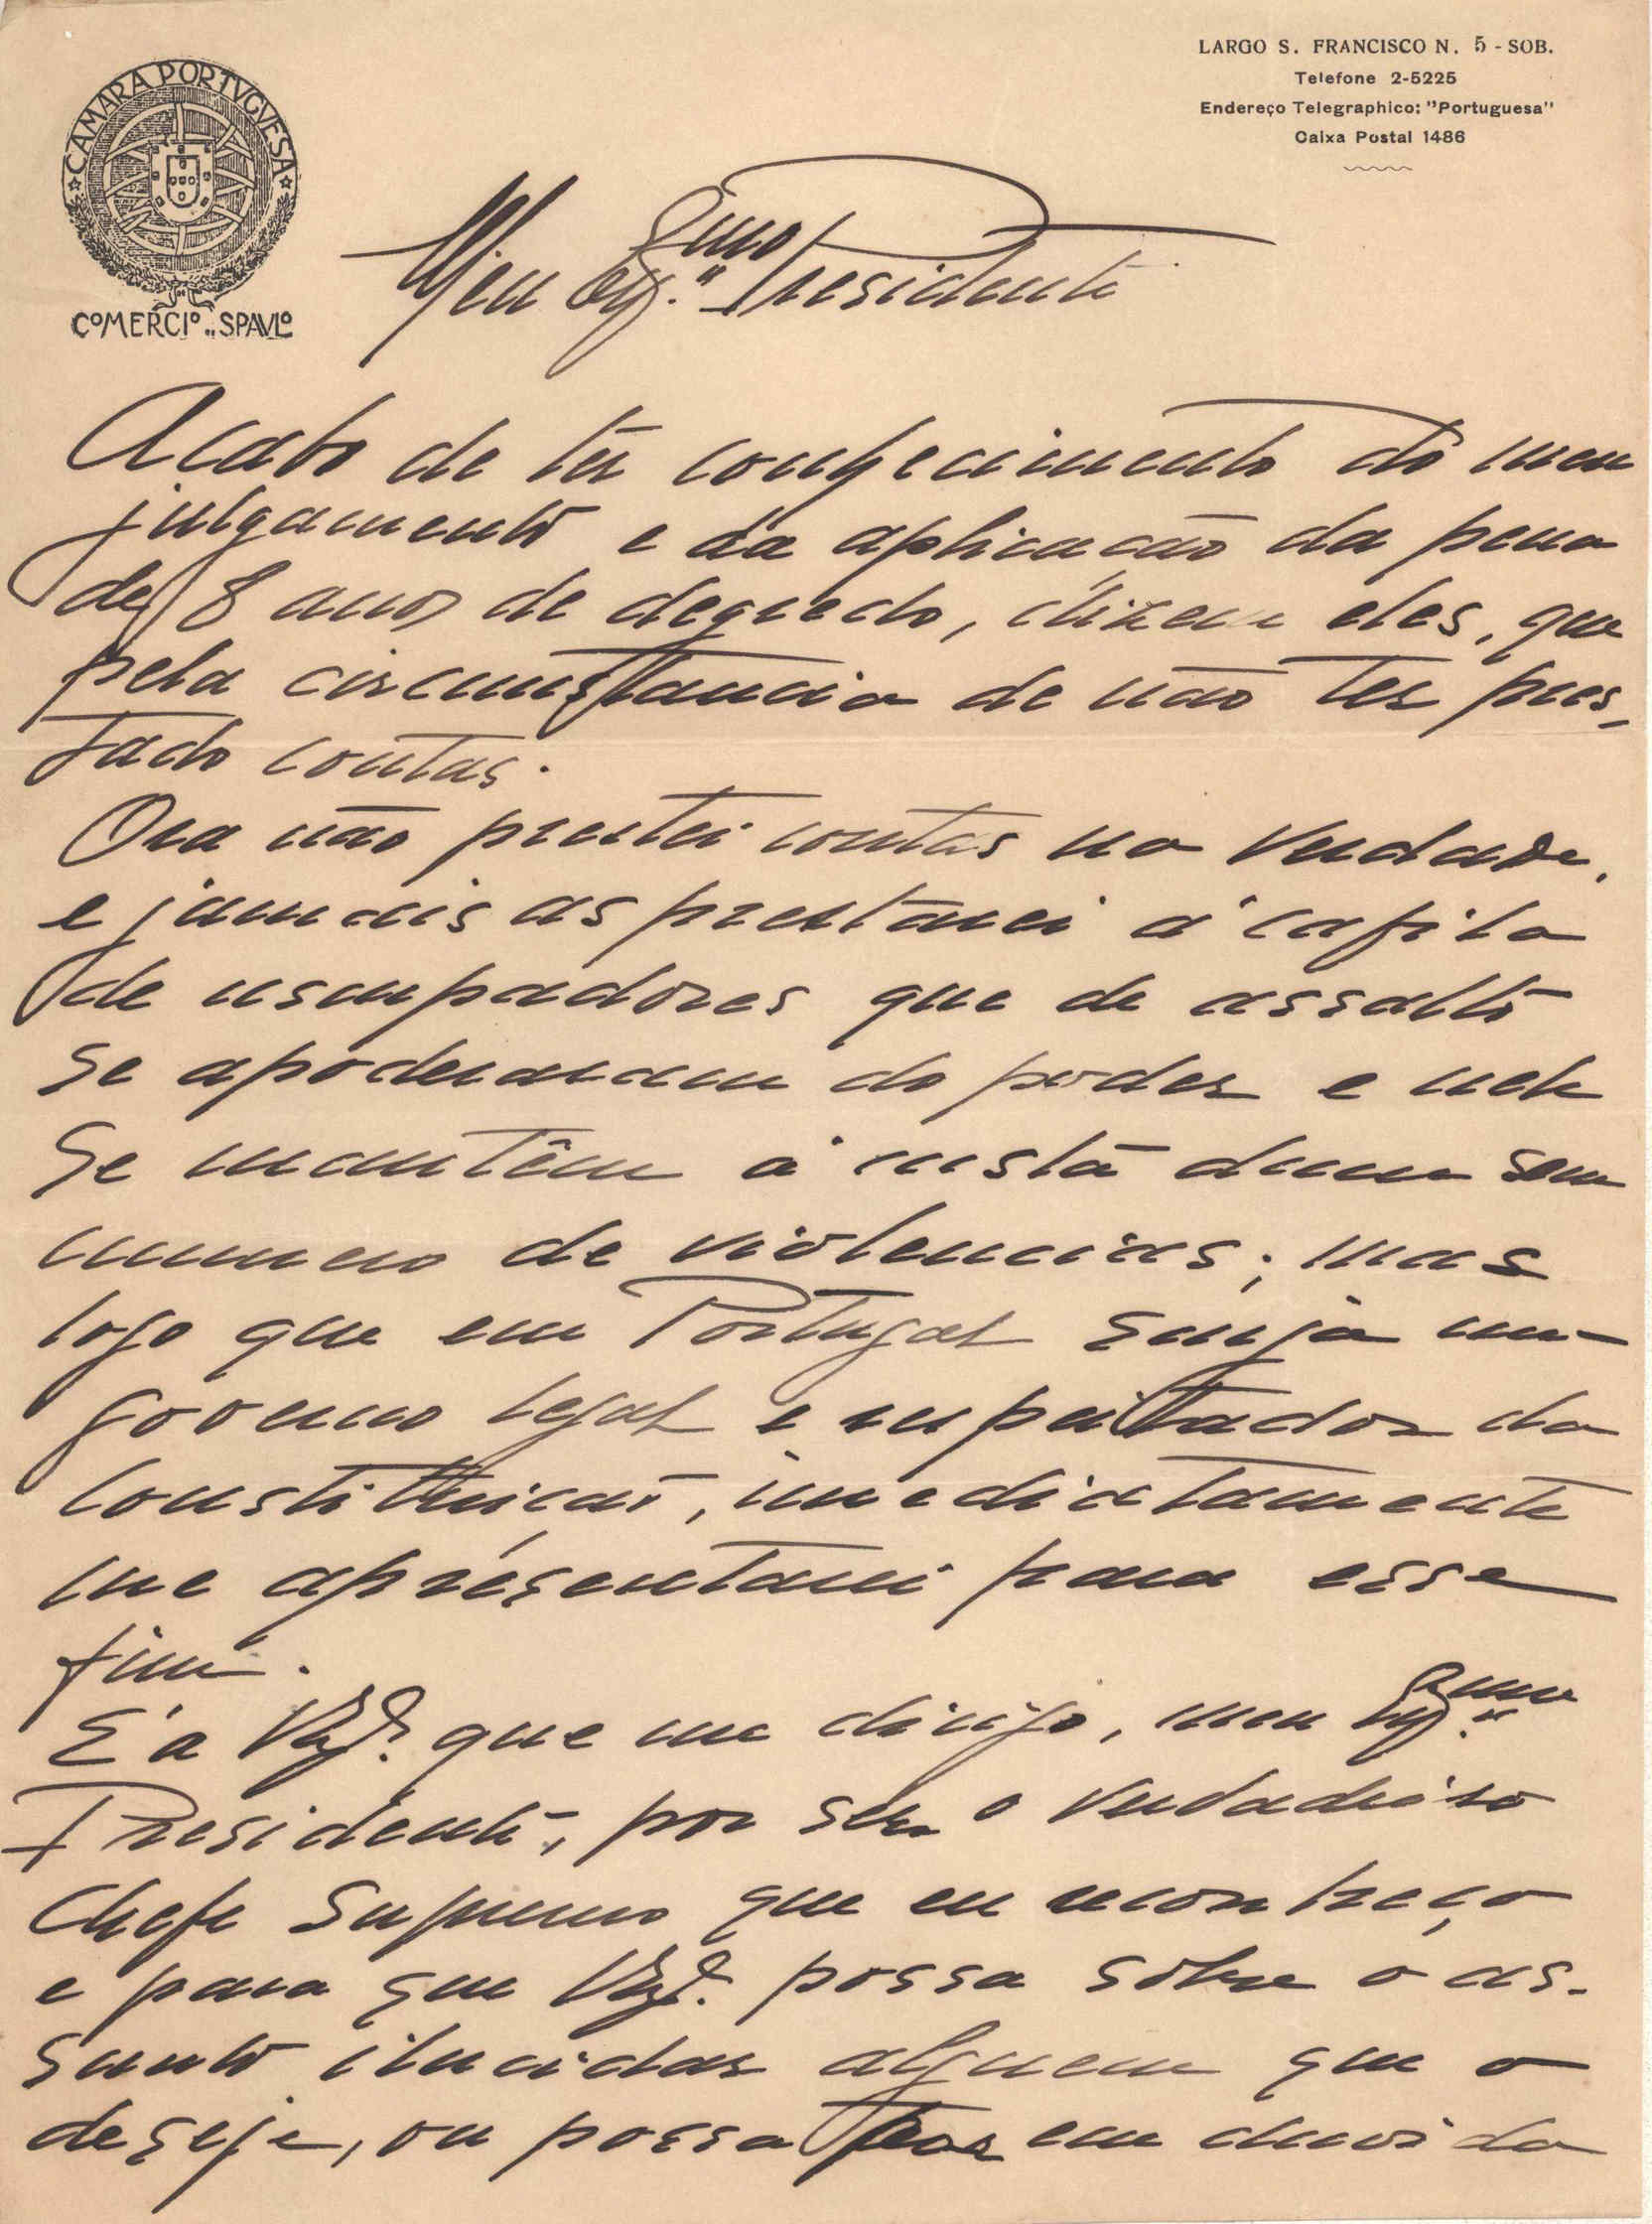 LARGO S. FRANCISCO N. 5 - SOB.
Telefone 2-5225
Endereço Telegraphico: "Portuguesa"
Caixa Postal 1486
CAMARA PORTVGVESA
COMERCIO SPAVLO
Meu Exmo Presidente
Acabo de ter conhecimento do meu
julgamento e da aplicação da pena
de 8 anos de degredo, dizem eles, que
pela circumstancia de não ter pres-
tado contas.
Ora não prestei contas na verdade,
e jamais as prestarei á cafila
de usurpadores que de assalto
se apoderaram do poder e nele
se mantêm á custa dum sem
numero de violencias; mas
logo que em Portugal surja um
governo legal e respeitador da
Constituição, imediatamente
me apresentarei para esse
fim.
É a V. Exª. que me dirijo, meu Exmo
Presidente, por ser o verdadeiro
Chefe Supremo que eu reconheço
e para que V. Exª. possa sobre o as-
sunto ilucidar alguem que o
deseje, ou possa por em duvida